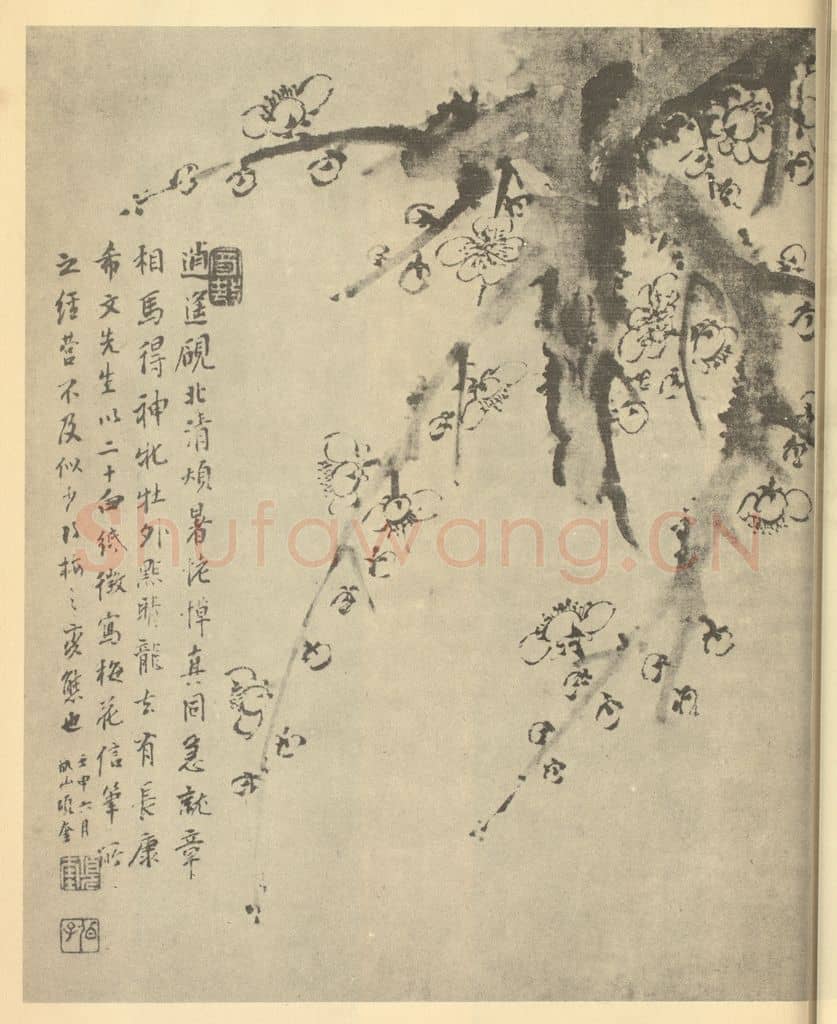 逍遙硯北清煩暑恍惚真同急就章
相馬得神牝牡外點睛龍去有長康
希文先生以二十白紙徵寫梅花信筆所
之經營不及似少梅之變態也
壬申六月
山項奎
Shufawang.CN